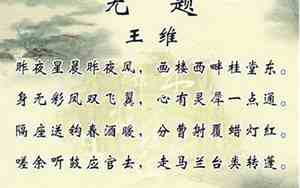 无题
王维
昨夜星晨昨夜风，画楼西畔桂堂东。
身无彩凤双飞翼，心有灵犀一点通。
隔座送钩春酒暖，分曹射覆蜡灯红。
嗟余听鼓应官去，走马兰台类转蓬。